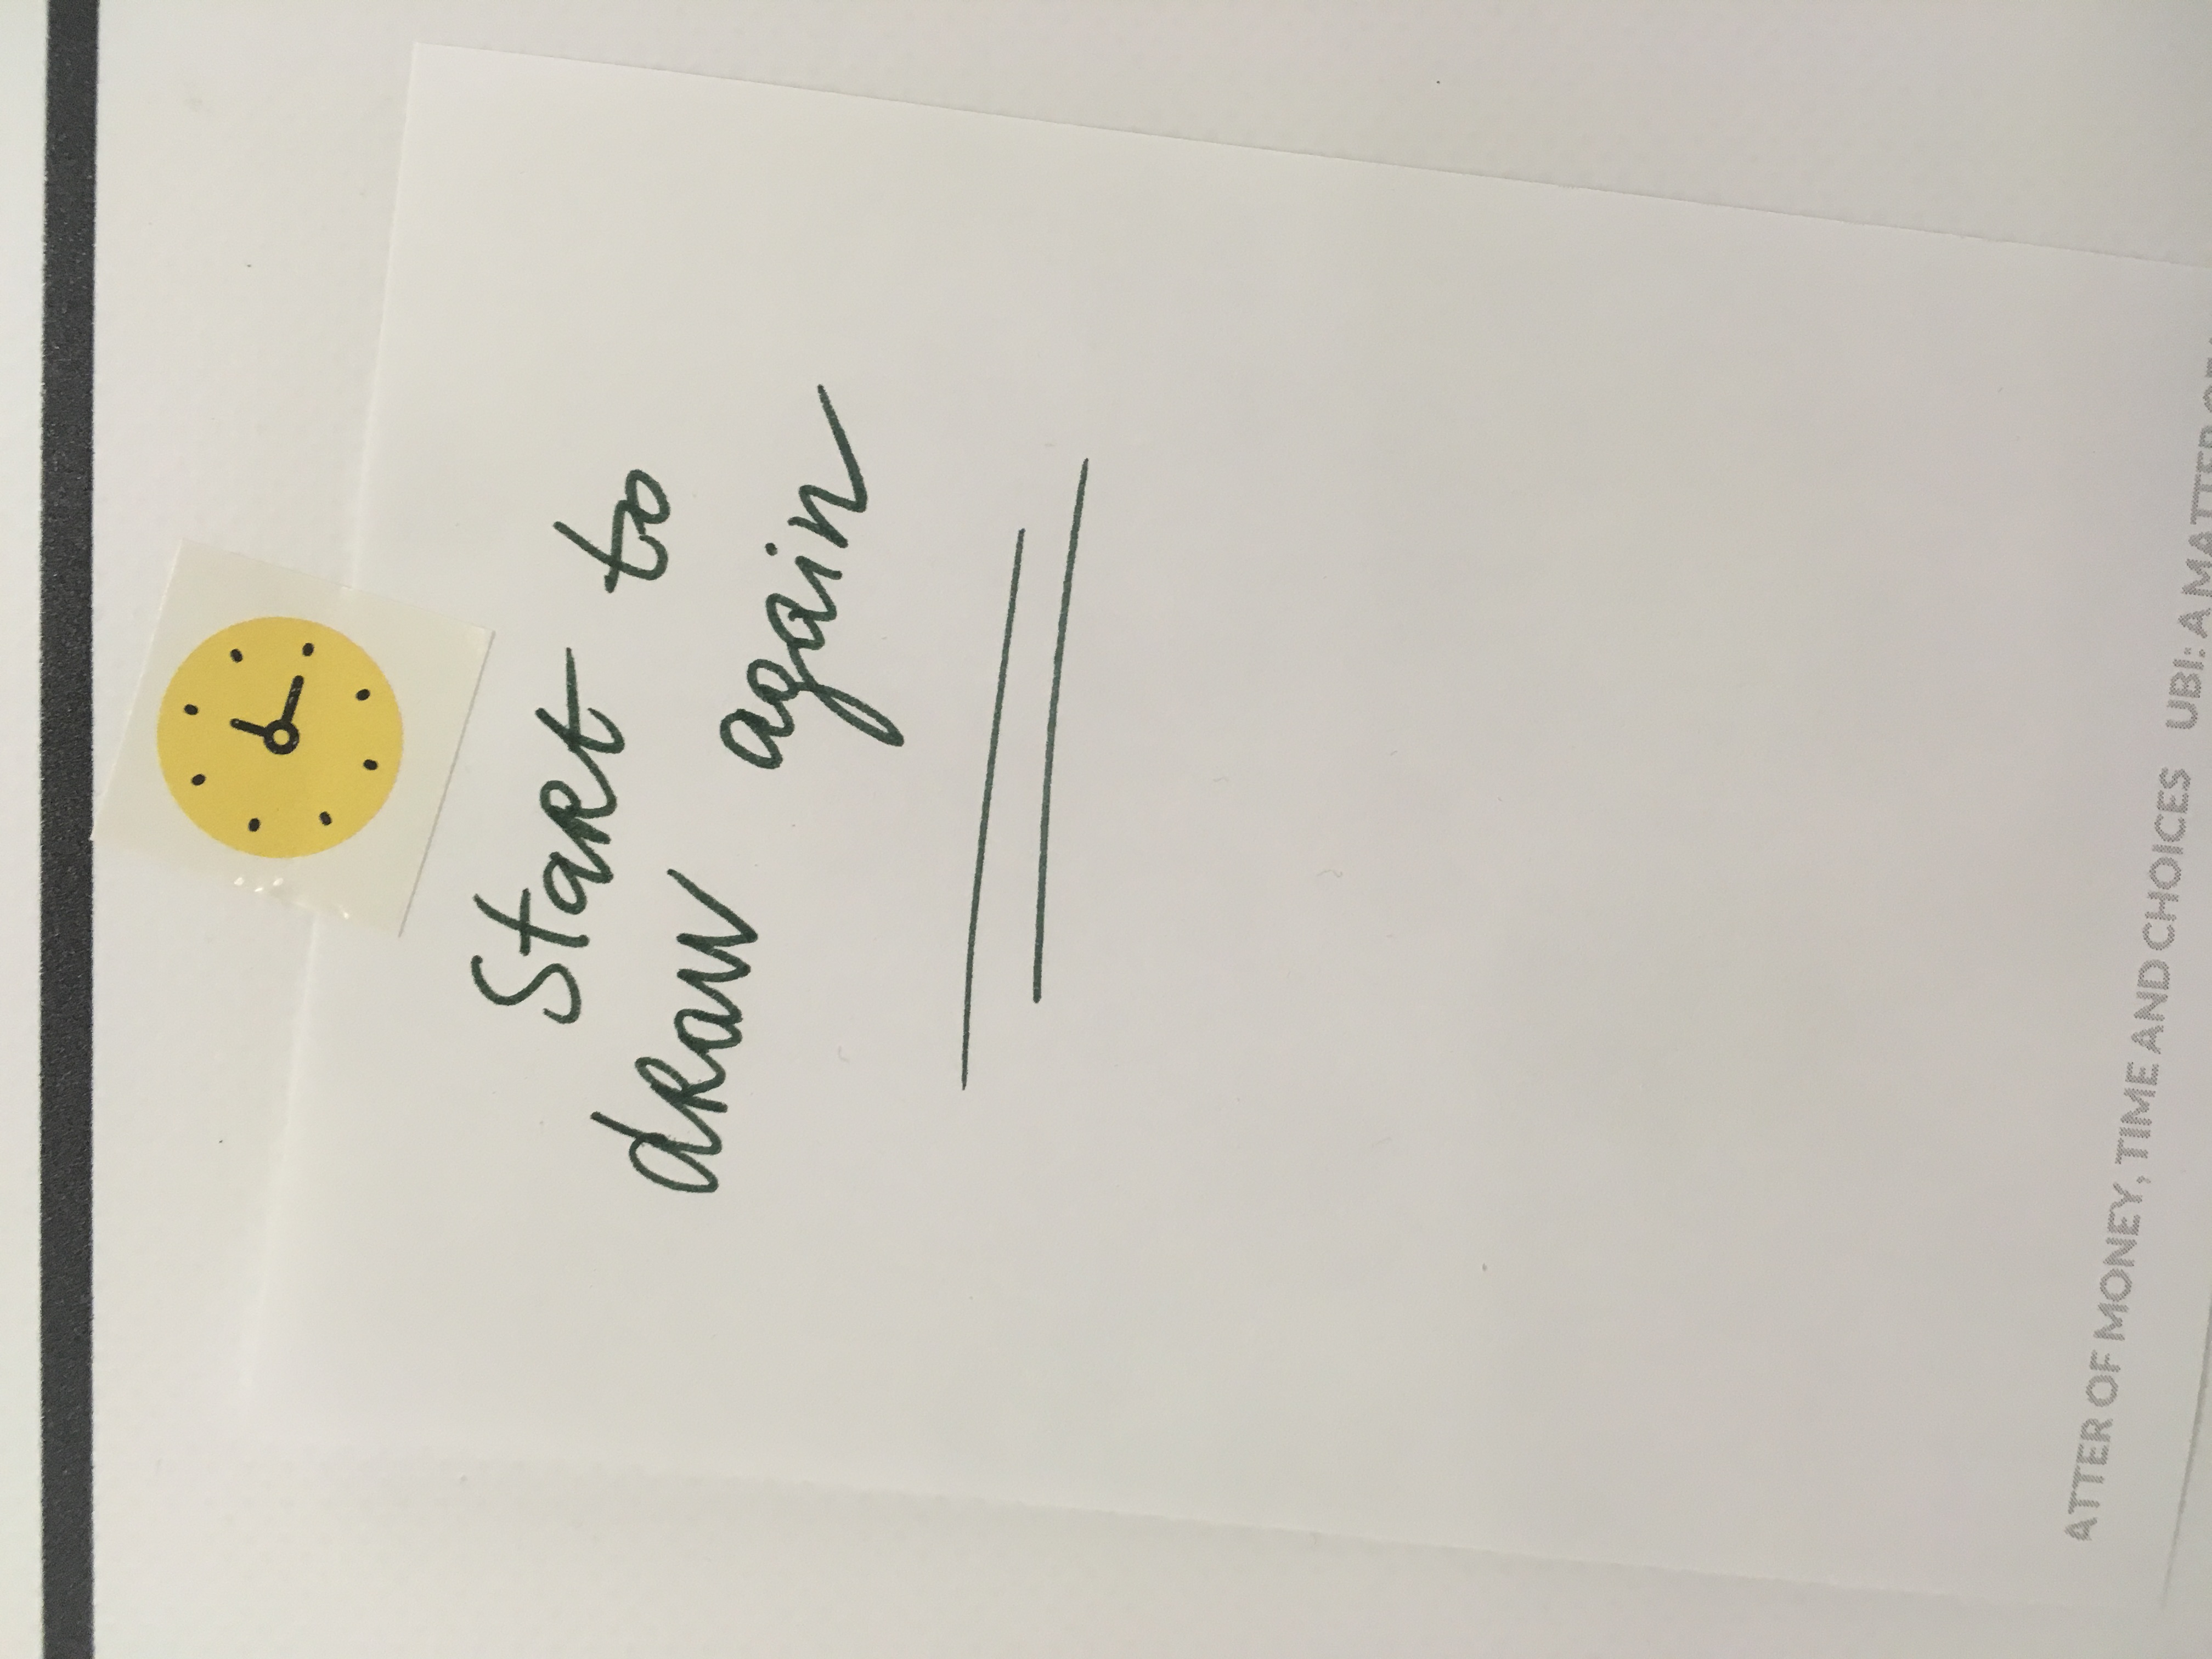 Start to
draw again
ATTER OF MONEY, TIME AND CHOICES UBI: A MATTER OF